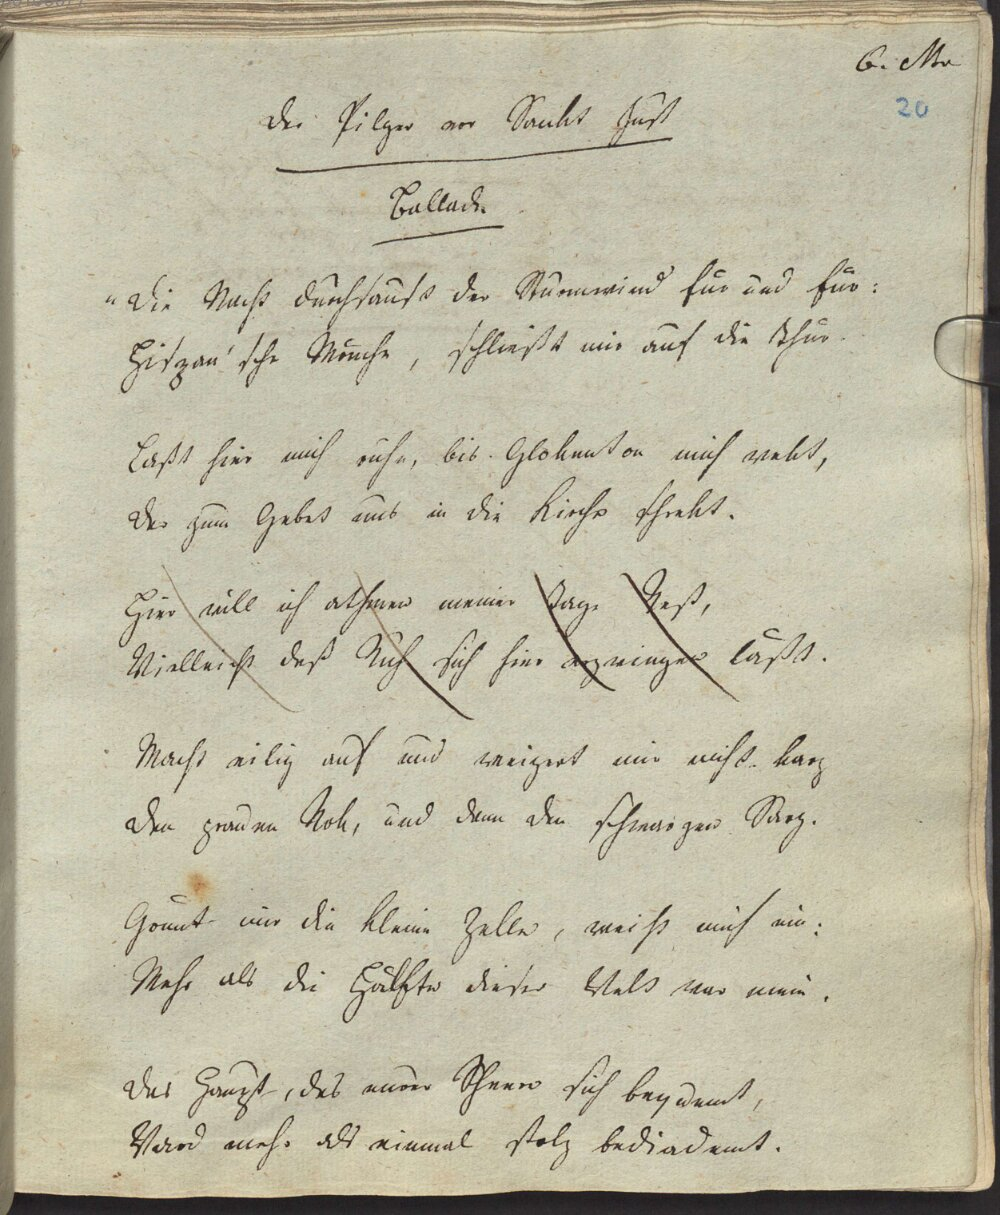 6. Mr
20
Der Pilger vor Sankt Just
Ballade
"Die Nacht durchsaust der Sturmwind für und für:
Hispan'sche Mönche, schließt mir auf die Thür.
Laßt hier mich ruhn, bis Glokenton mich wekt,
Der zum Gebet uns in die Kirche schrekt.
Hier will ich athmen meiner Tage Rest,
Vielleicht daß Ruh sich hier erzwingen läßt.
Macht eilig auf und weigert mir nicht karg
Den grauen Rok, und dann den schwarzen Sarg.
Gönnt mir die kleine Zelle, weiht mich ein:
Mehr als die Hälfte dieser Welt war mein.
Das Haupt, das eurer Scheere sich bequemt,
Ward mehr als einmal stolz bediademt.